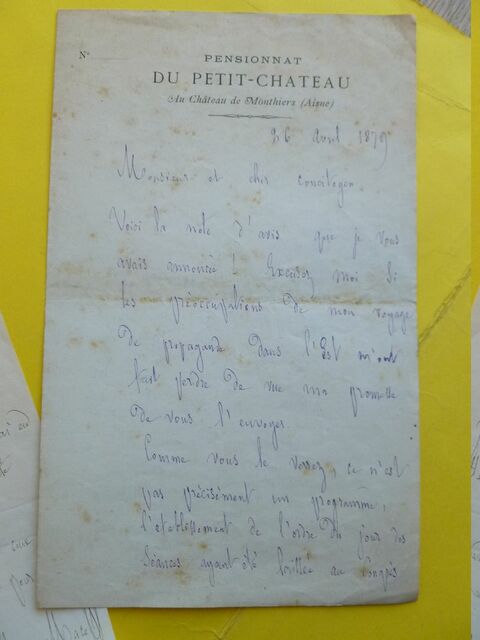 N°
PENSIONNAT
DU PETIT-CHATEAU
Au Château de Monthiers (Aisne)
26 avril 1879
Monsieur et cher concitoyen
Voici la note d'avis que je vous
avais annoncée ! Excusez moi si
les préoccupations de mon voyage
de propagande dans l'Est m'ont
fait perdre de vue ma promesse
de vous l'envoyer.
Comme vous le verrez, ce n'est
pas précisément un programme,
l'établissement de l'ordre du jour des
séances ayant été au Congrès